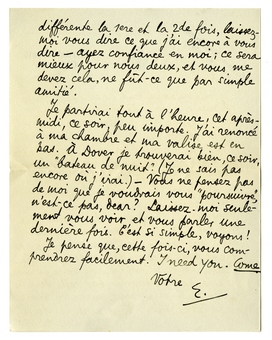 différente la 1ere et la 2de fois, laissez-
moi vous dire ce que j'ai encore à vous
dire – ayez confiance en moi ; ce sera
mieux pour nous deux, et vous me
devez cela, ne fût-ce que par simple
amitié.
Je partirai tout à l'heure, cet après-
midi, ce soir, peu importe. J'ai renoncé
à ma chambre et ma valise est en
bas. À Dover je trouverai bien, ce soir,
un bateau de nuit. (Je ne sais pas
encore où j'irai.) – Vous ne pensez pas
de moi que je voudrais vous "poursuivre",
n'est-ce pas, dear? Laissez-moi seule-
ment vous voir et vous parler une
dernière fois. C'est si simple, voyons!
Je pense que, cette fois-ci, vous com-
prendrez facilement. I need you. Come
Votre
E.